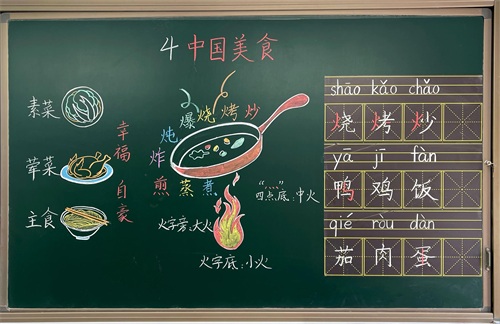 4 中国美食
素菜
荤菜
主食
幸福
自家
炸炖爆烧烤炒
煎蒸煮
"灬"
四点底:中火
火字旁:大火
火字底:小火
shāo kǎo chǎo
烧烤炒
yā jī fàn
鸭鸡饭
qié ròu dàn
茄肉蛋